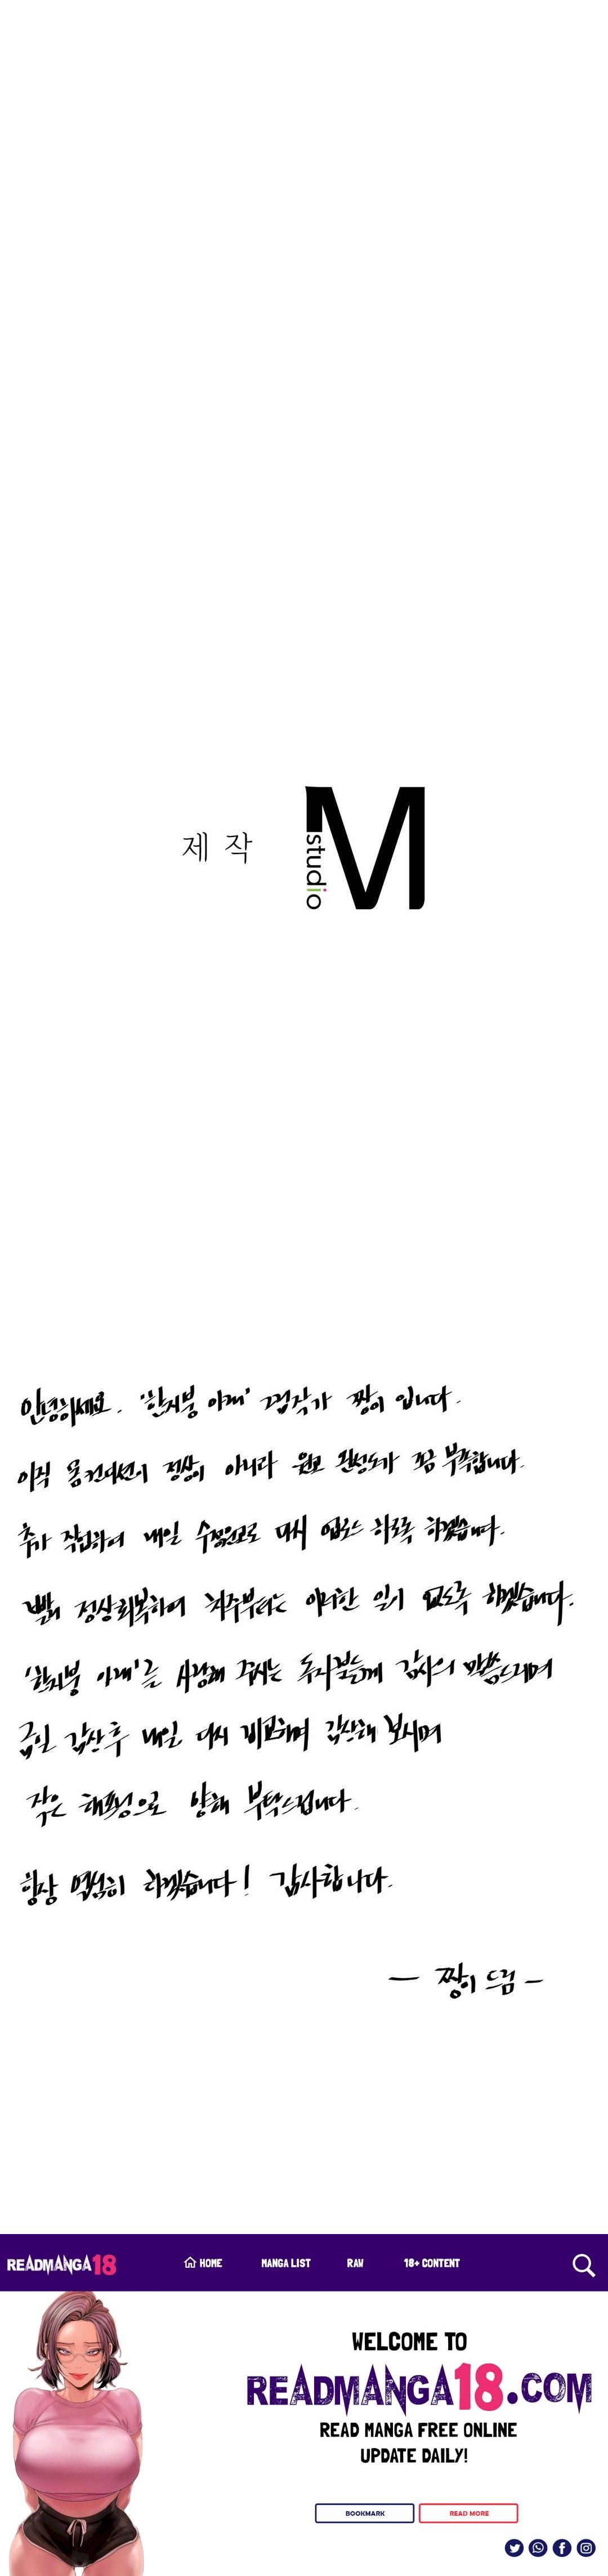 제 작
M
studio
안녕하세요. '한지붕 아래' 그림작가 짱이 입니다.
아직 몸 컨디션이 정상이 아니라 원고 완성도가 조금 부족합니다.
추가 작업하여 내일 수정원고로 다시 업로드 하도록 하겠습니다.
빨리 정상회복하여 차주부터는 이러한 일이 없도록 하겠습니다.
'한지붕 아래'를 사랑해 주시는 독자분들께 감사의 말씀드리며
금일 감상 후 내일 다시 비교하며 감상해 보시며
작은 해프닝으로 양해 부탁드립니다.
항상 열심히 하겠습니다! 감사합니다.
- 짱이 드림 -
READMANGA18
HOME
MANGA LIST
RAW
18+ CONTENT
WELCOME TO
READMANGA18.COM
READ MANGA FREE ONLINE
UPDATE DAILY!
BOOKMARK
READ MORE